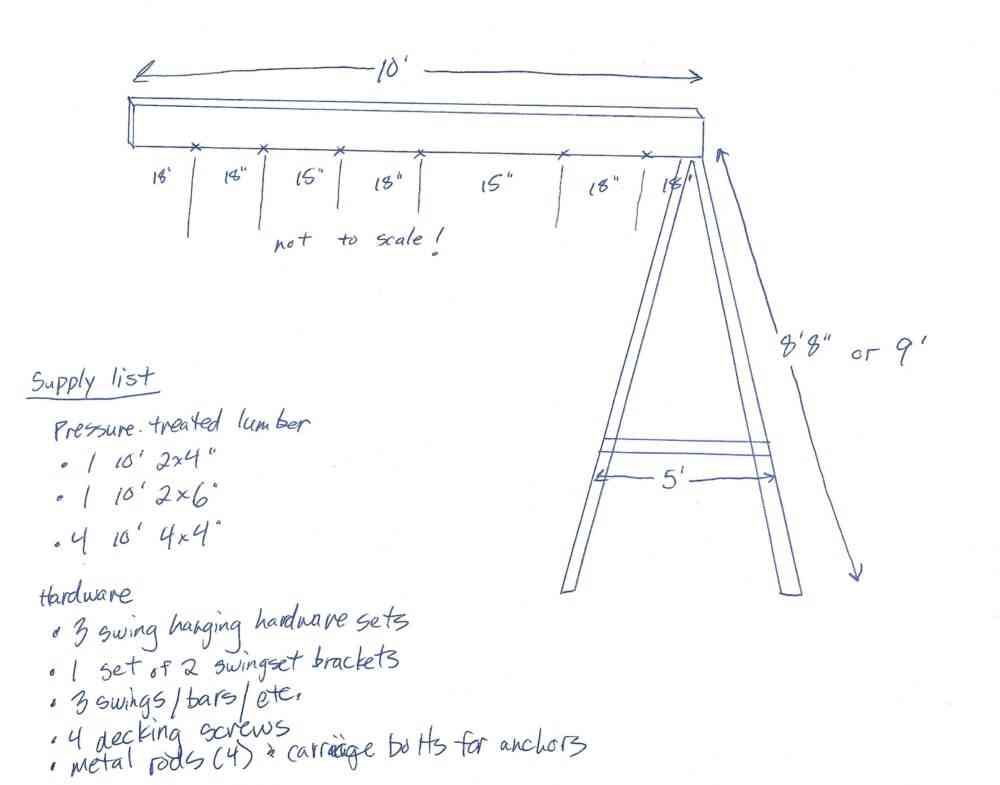 10'
18' 18" 15" 18" 15" 18" 18"
not to scale!
8'8" or 9'
5'
Supply list
Pressure-treated lumber
• 1 10' 2x4"
• 1 10' 2x6"
• 4 10' 4x4"
Hardware
• 3 swing hanging hardware sets
• 1 set of 2 swingset brackets
• 3 swings/bars/etc.
• 4 decking screws
• metal rods (4) & carriage bolts for anchors